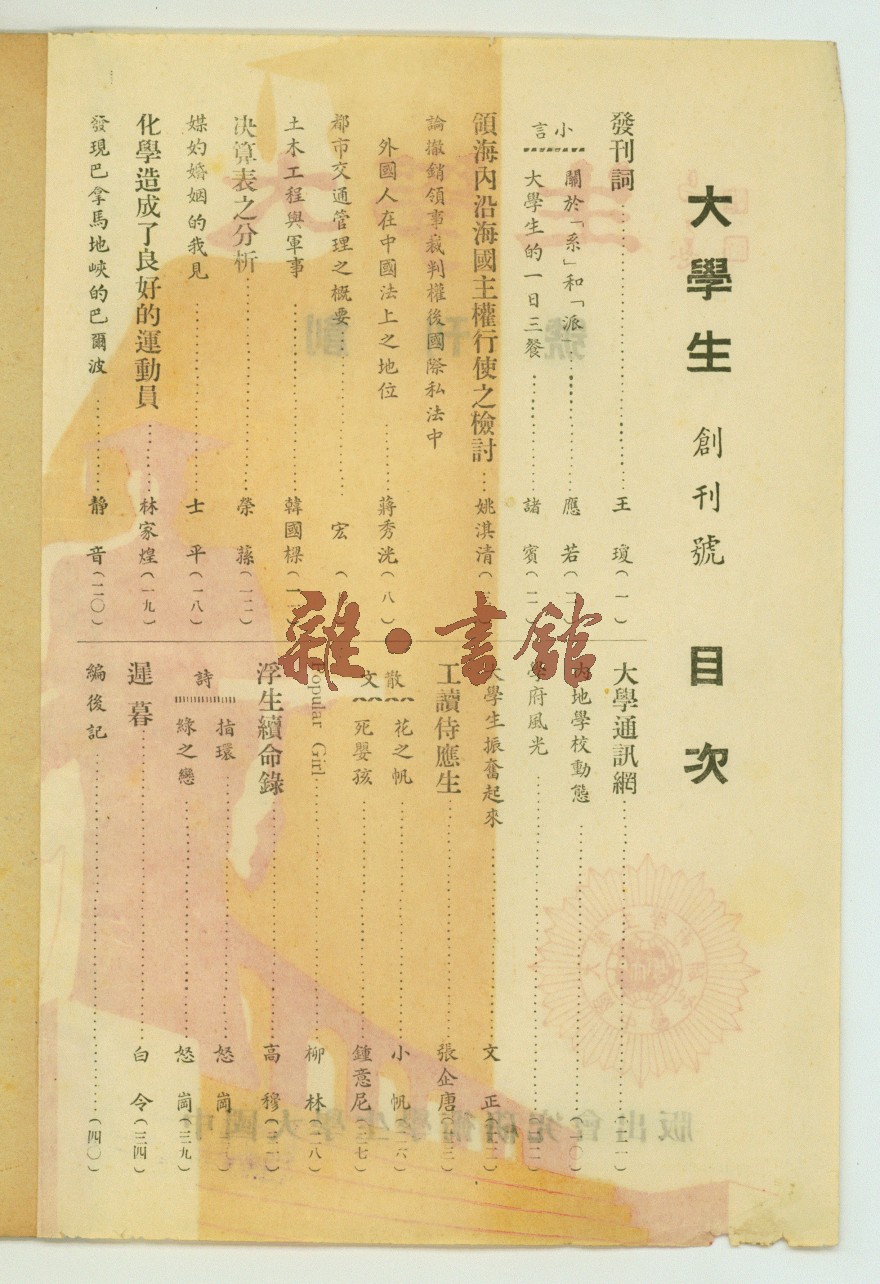 大學生 創刊號 目次
發刊詞 王瓊 (一)
小言
關於「系」和「派」 應若
大學生的一日三餐 諸賓 (二)
領海內沿海國主權行使之檢討 姚淇清
論撤銷領事裁判權後國際私法中
外國人在中國法上之地位 蔣秀洸 (八)
都市交通管理之概要 宏
土木工程與軍事 韓國樑
决算表之分析 榮蓀 (一二)
媒妁婚姻的我見 士平 (一八)
化學造成了良好的運動員 林家煌 (一九)
發現巴拿馬地峽的巴爾波 靜音 (二〇)
大學通訊網 (二一)
內地學校動態
學府風光
大學生振奮起來 文正
工讀侍應生 張企唐
散文
花之帆 小帆 (二六)
死嬰孩 鍾意尼 (二七)
Popular Girl 柳林 (二八)
浮生續命錄 高穆
詩
指環 怒崗
綠之戀 怒崗 (三九)
遲暮 白令 (三四)
編後記 (四〇)
雜·書館
中國大學生學術研究會出版